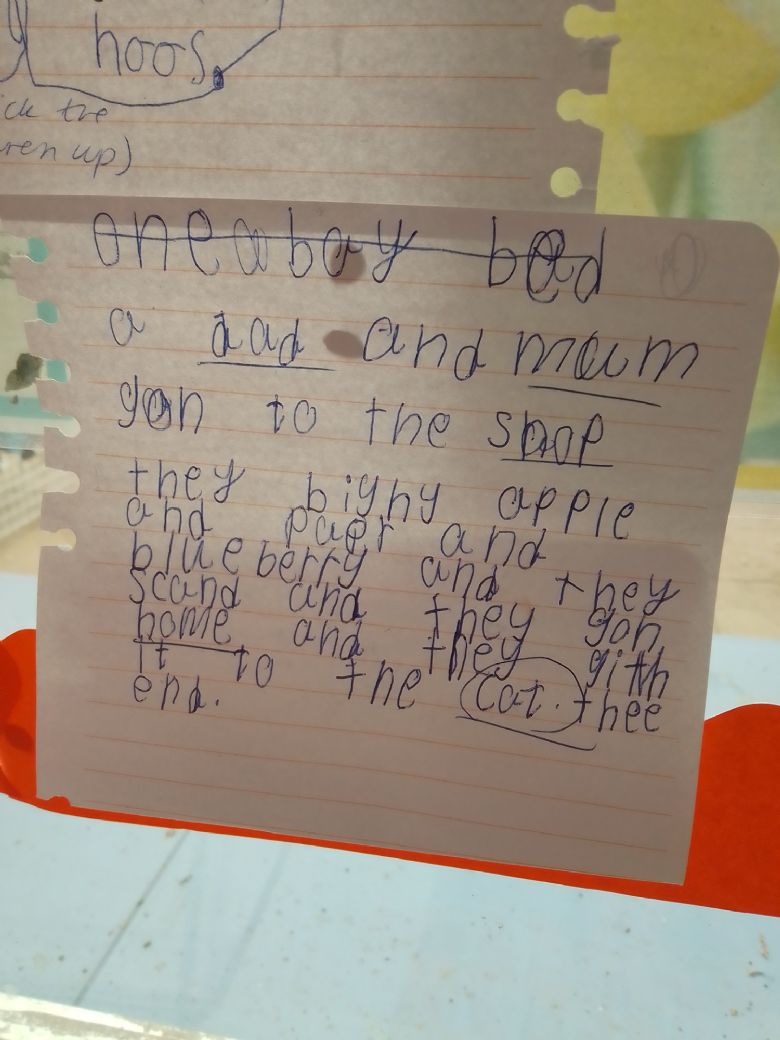 hoos.
ck the
ren up)
one a boy bed
a dad and mum
gon to the shop
they bighy apple
and paer and
blueberry and they
scand and they gon
home and they gith
it to the cat. thee
end.